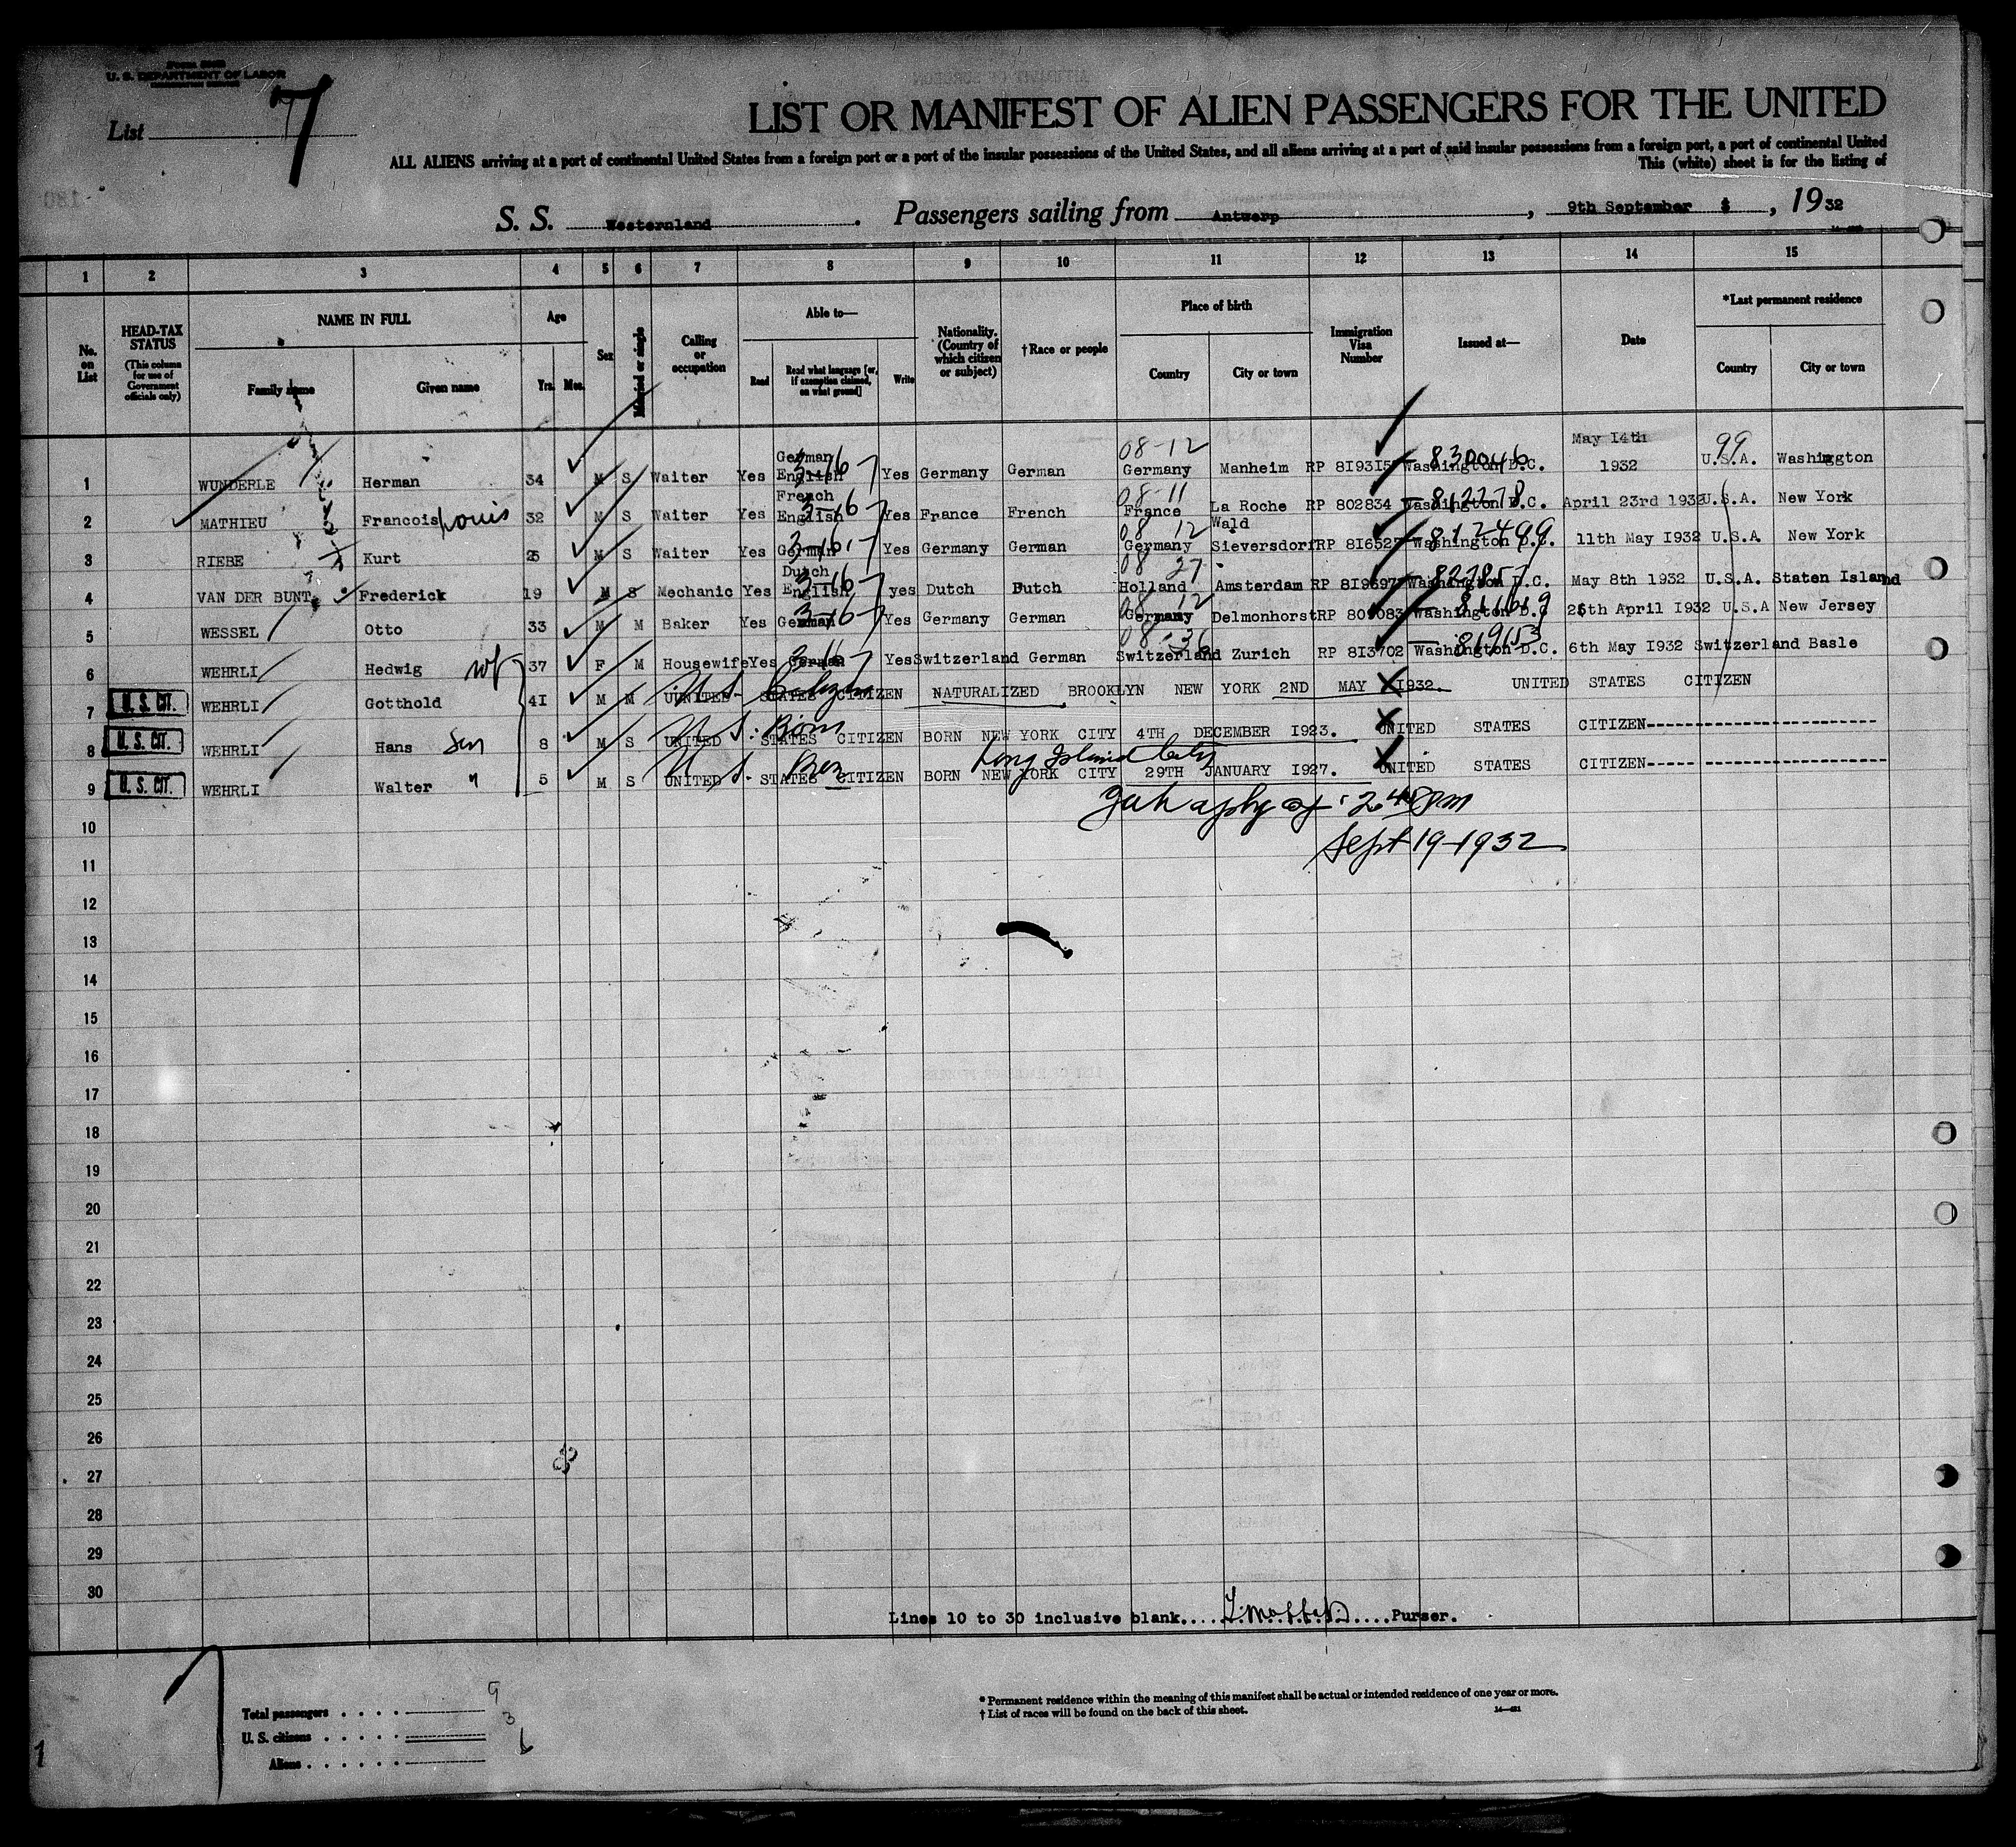 U. S. DEPARTMENT OF LABOR
List 7
LIST OR MANIFEST OF ALIEN PASSENGERS FOR THE UNITED
ALL ALIENS arriving at a port of continental United States from a foreign port or a port of the insular possessions of the United States, and all aliens arriving at a port of said insular possessions from a foreign port, a port of continental United
This (white) sheet is for the listing of
S. S. Westernland. Passengers sailing from Antwerp, 9th September, 1932
1 2 3 4 5 6 7 8 9 10 11 12 13 14 15
No. on List
HEAD-TAX STATUS (This column for use of Government officials only)
NAME IN FULL Family name Given name
Age Yrs. Mos.
Sex
Married or single
Calling or occupation
Able to— Read Read what language [or, if exemption claimed, on what ground] Write
Nationality. (Country of which citizen or subject)
†Race or people
Place of birth Country City or town
Immigration Visa Number
Issued at—
Date
*Last permanent residence Country City or town
1 WUNDERLE Herman 34 M S Waiter Yes German English 3-16 Yes Germany German 08-12 Germany Manheim RP 819315 Washington D.C. 830046 May 14th 1932 99 U.S.A. Washington
2 MATHIEU Francois Louis 32 M S Waiter Yes French English 3-16 Yes France French 08-11 France La Roche RP 802834 Washington D.C. 812278 April 23rd 1932 U.S.A. New York
3 RIEBE Kurt 25 M S Waiter Yes German 3-16 Yes Germany German 08 12 Germany Wald Sieversdorf RP 81652 Washington D.C. 812499 11th May 1932 U.S.A New York
4 VAN DER BUNT Frederick 19 M S Mechanic Yes Dutch English 3-16 yes Dutch Dutch 08 27 Holland Amsterdam RP 819697 Washington D.C. 827857 May 8th 1932 U.S.A. Staten Island
5 WESSEL Otto 33 M M Baker Yes German 3-16 Yes Germany German 08-12 Germany Delmonhorst RP 809083 Washington D.C 811619 26th April 1932 U.S.A New Jersey
6 WEHRLI Hedwig wf 37 F M Housewife Yes German 3-16 Yes Switzerland German 08-36 Switzerland Zurich RP 813702 Washington D.C. 819153 6th May 1932 Switzerland Basle
7 U. S. CIT. WEHRLI Gotthold 41 M M U S Citizen UNITED STATES CITIZEN NATURALIZED BROOKLYN NEW YORK 2ND MAY 1932. UNITED STATES CITIZEN
8 U. S. CIT. WEHRLI Hans Son 8 M S U S. Born UNITED STATES CITIZEN BORN NEW YORK CITY 4TH DECEMBER 1923. UNITED STATES CITIZEN
Long Island City
9 U. S. CIT. WEHRLI Walter " 5 M S U S. Born UNITED STATES CITIZEN BORN NEW YORK CITY 29TH JANUARY 1927. UNITED STATES CITIZEN
pm
Sept 19-1932
10
11
12
13
14
15
16
17
18
19
20
21
22
23
24
25
26
27
28
29
30
Lines 10 to 30 inclusive blank.... ....Purser.
Total passengers 9
U. S. citizens 3
Aliens 6
* Permanent residence within the meaning of this manifest shall be actual or intended residence of one year or more.
† List of races will be found on the back of this sheet.
1